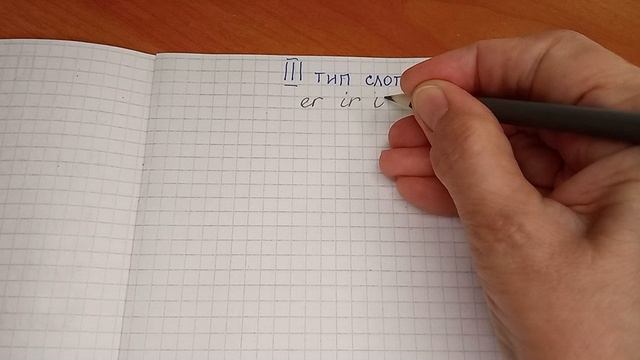 III тип слог
er ir